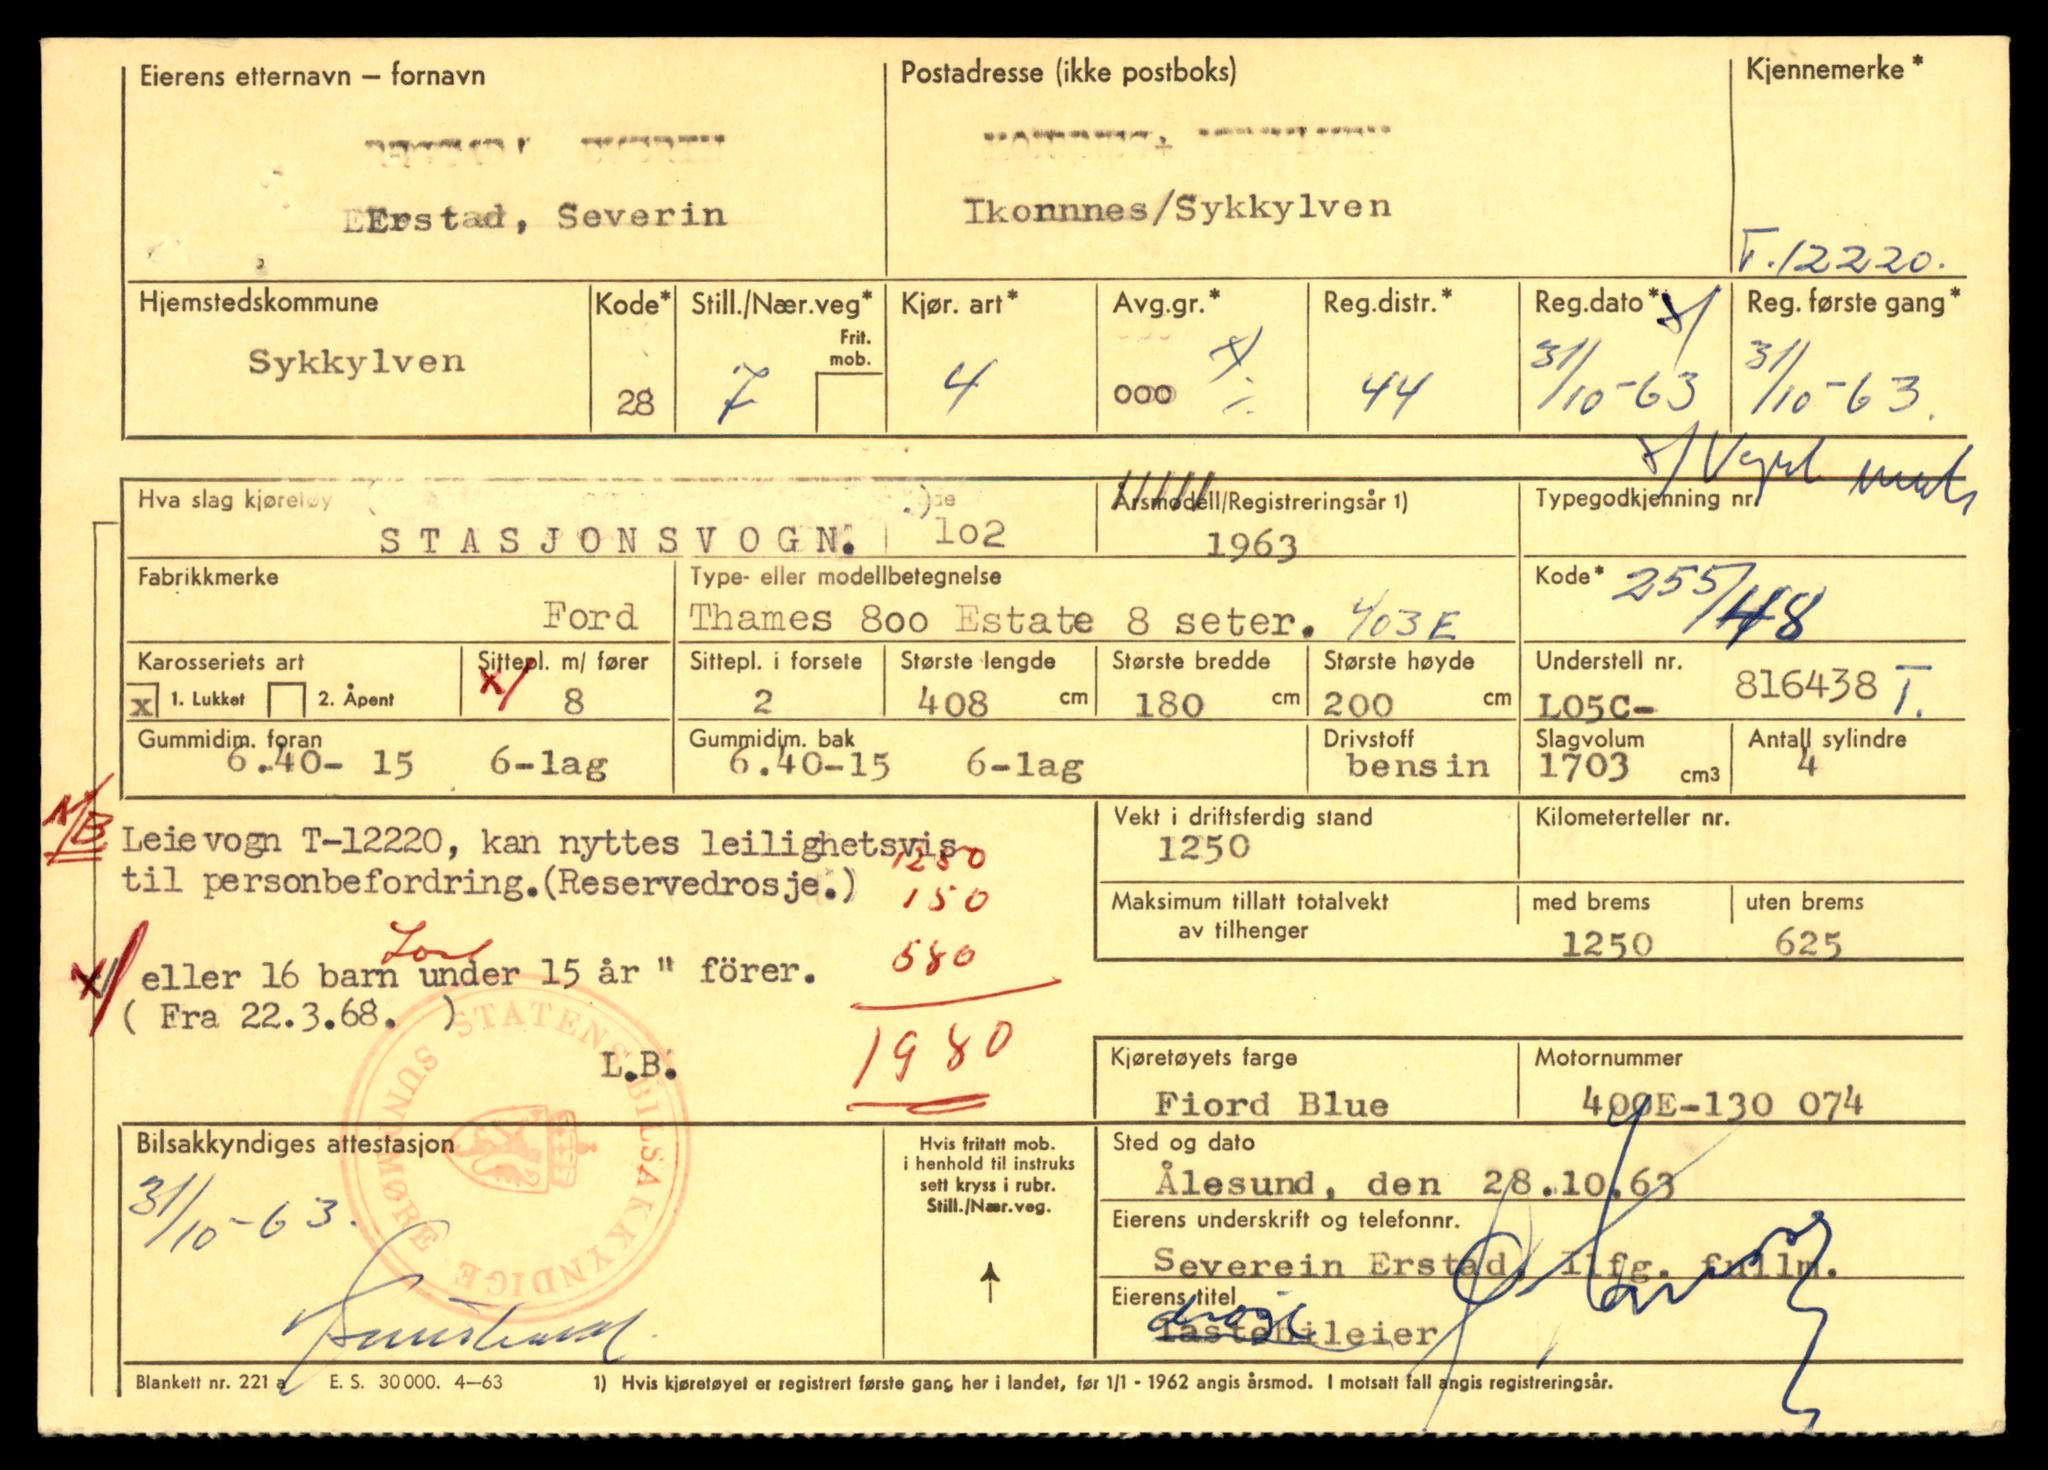 Eierens etternavn – fornavn
Postadresse (ikke postboks)
Kjennemerke*
EErstad, Severin
Ikonnnes/Sykkylven
T.12220.
Hjemstedskommune
Kode*
Still./Nær.veg*
Frit. mob.
Kjør. art*
Avg.gr.*
Reg.distr.*
Reg.dato*
Reg. første gang*
Sykkylven
28
7
4
000
44
31/10-63
31/10-63.
Hva slag kjøretøy
STASJONSVOGN.
lo2
Årsmodell/Registreringsår 1)
1963
Typegodkjenning nr.
Fabrikkmerke
Ford
Type- eller modellbetegnelse
Thames 8oo Estate 8 seter. 403E
Kode*
255/48
Karosseriets art
x 1. Lukket
2. Åpent
Sittepl. m/ fører
x/ 8
Sittepl. i forsete
2
Største lengde
408 cm
Største bredde
180 cm
Største høyde
200 cm
Understell nr.
L05C- 816438 T.
Gummidim. foran
6.40- 15 6-lag
Gummidim. bak
6.40-15 6-lag
Drivstoff
bensin
Slagvolum
1703 cm3
Antall sylindre
4
N/B Leievogn T-12220, kan nyttes leilighetsvis
til personbefordring.(Reservedrosje.)
x/ eller 16 barn under 15 år " förer.
( Fra 22.3.68. )
L.B.
1250
150
580
1980
Vekt i driftsferdig stand
1250
Kilometerteller nr.
Maksimum tillatt totalvekt
av tilhenger
med brems
1250
uten brems
625
Kjøretøyets farge
Fiord Blue
Motornummer
400E-130 074
STATENS BILSAKKYNDIGE MØRE
Bilsakkyndiges attestasjon
31/10-63.
Hvis fritatt mob.
i henhold til instruks
sett kryss i rubr.
Still./Nær.veg.
Sted og dato
Ålesund, den 28.10.63
Eierens underskrift og telefonnr.
Severein Erstad, Ilfg. fullm.
Eierens titel
lastebileier
Blankett nr. 221 a E. S. 30 000. 4–63
1) Hvis kjøretøyet er registrert første gang her i landet, før 1/1 - 1962 angis årsmod. I motsatt fall angis registreringsår.